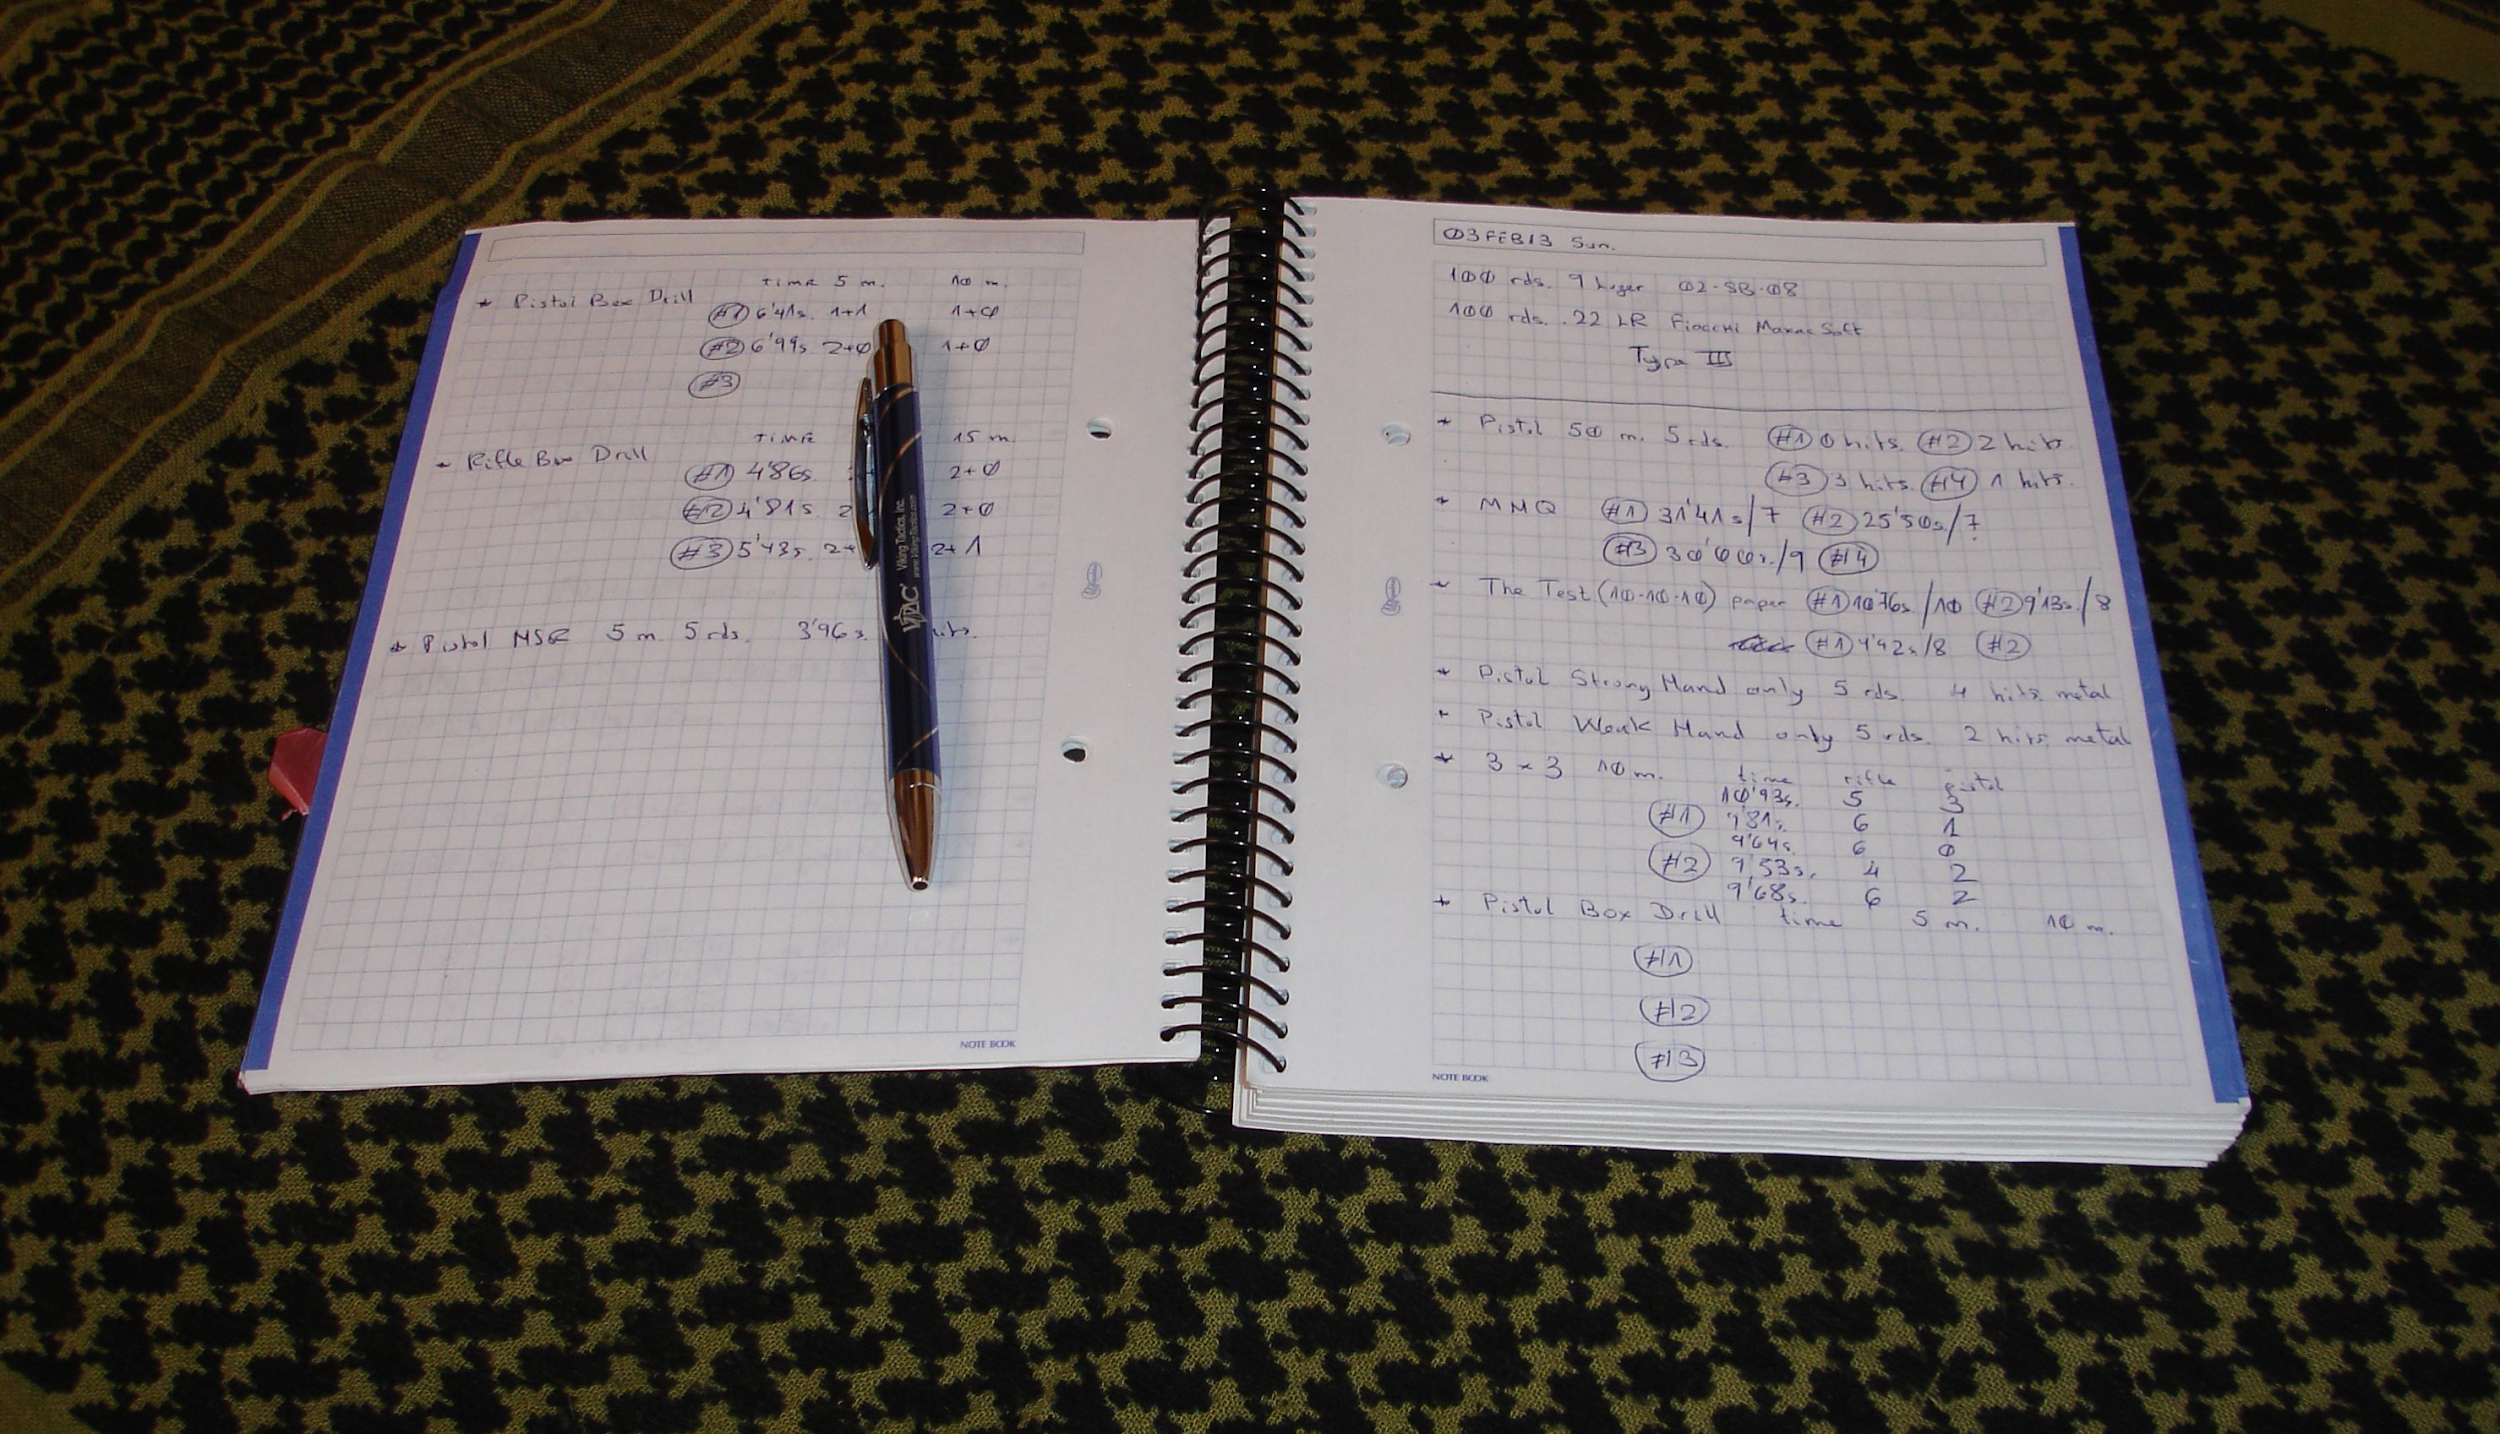 TIME 5 m. 10 m.
* Pistol Box Drill
#1 6'41s. 1+1 1+0
#2 6'99s. 2+0 1+0
#3
TIME 15 m.
* Rifle Box Drill
#1 4'86s. 2+0
#2 4'81s. 2 2+0
#3 5'43s. 2+ 2+1
* Pistol MSR 5 m. 5 rds. 3'96s.
NOTE BOOK
VTAC Viking Tactics, Inc.
www.VikingTactics.com
03FEB13 Sun.
100 rds. 9 Luger 02-SB-08
100 rds. .22 LR Fiocchi Maxac Soft
Type III
* Pistol 50 m. 5 rds. #1 0 hits. #2 2 hits
#3 3 hits. #4 1 hits.
* MMQ #1 31'41s/7 #2 25'50s/7
#3 30'00s./9 #4
* The Test (10-10-10) paper #1 10'76s./10 #2 9'13s./8
#1 9'42s/8 #2
* Pistol Strong Hand only 5 rds. 4 hits metal
* Pistol Weak Hand only 5 rds. 2 hits metal
* 3 x 3 10 m. time rifle pistol
10'93s. 5 3
#1 9'81s. 6 1
9'64s. 6 0
#2 9'53s. 4 2
9'68s. 6 2
* Pistol Box Drill time 5 m. 10 m.
#1
#2
#3
NOTE BOOK